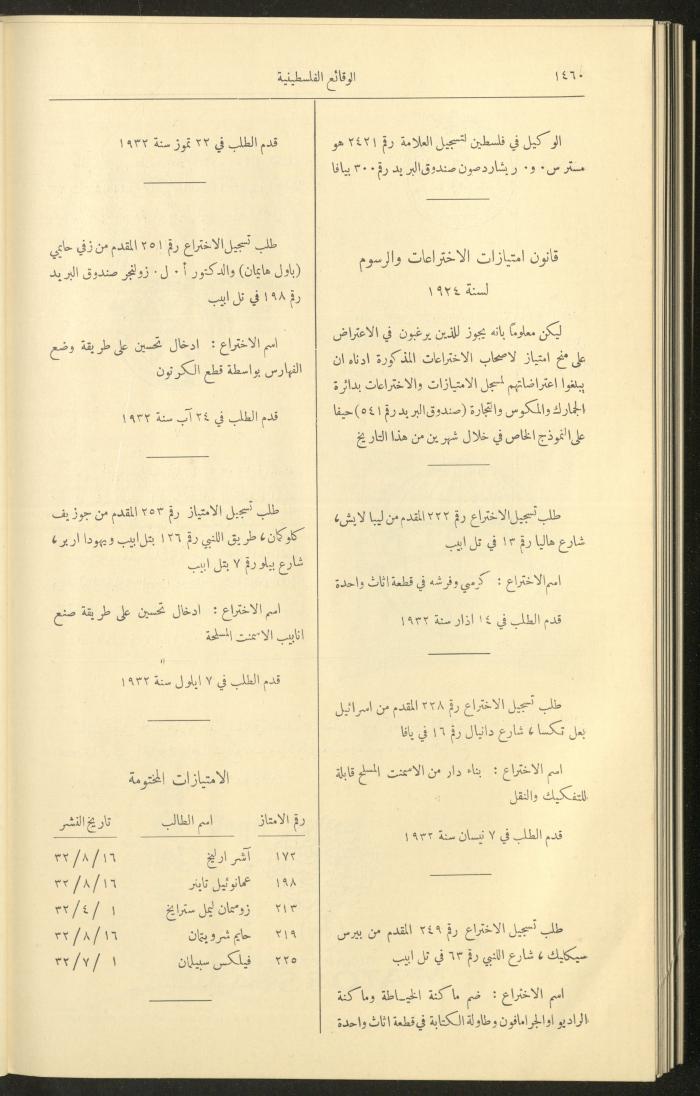 ١٤٦٠
الوقائع الفلسطينية
الوكيل في فلسطين لتسجيل العلامة رقم ٢٤٢١ هو
مستر س٠ و٠ ريشاردصون صندوق البريد رقم ٣٠٠ بيافا
قانون امتيازات الاختراعات والرسوم
لسنة ١٩٢٤
ليكن معلوماً بانه يجوز للذين يرغبون في الاعتراض
على منح امتياز لاصحاب الاختراعات المذكورة ادناه ان
يبلغوا اعتراضاتهم لمسجل الامتيازات والاختراعات بدائرة
الجمارك والمكوس والتجارة (صندوق البريد رقم ٥٤١) حيفا
على النموذج الخاص في خلال شهرين من هذا التاريخ
طلب تسجيل الاختراع رقم ٢٢٢ المقدم من ليبا لايش،
شارع هاليا رقم ١٣ في تل ابيب
اسم الاختراع : كرسي وفرشه في قطعة اثاث واحدة
قدم الطلب في ١٤ اذار سنة ١٩٣٢
طلب تسجيل الاختراع رقم ٢٢٨ المقدم من اسرائيل
بعل تكسا، شارع دانيال رقم ١٦ في يافا
اسم الاختراع : بناء دار من الاسمنت المسلح قابلة
للتفكيك والنقل
قدم الطلب في ٧ نيسان سنة ١٩٣٢
طلب تسجيل الاختراع رقم ٢٤٩ المقدم من بيرس
سيكليك، شارع اللنبي رقم ٦٣ في تل ابيب
اسم الاختراع : ضم ماكنة الخياطة وماكنة
الراديو اوالجرامافون وطاولة الكتابة في قطعة اثاث واحدة
قدم الطلب في ٢٢ تموز سنة ١٩٣٢
طلب تسجيل الاختراع رقم ٢٥١ المقدم من زفي حايمي
(باول هايمان) والدكتور أ٠ ل٠ زولنجر صندوق البريد
رقم ١٩٨ في تل ابيب
اسم الاختراع : ادخال تحسين على طريقة وضع
الفهارس بواسطة قطع الكرتون
قدم الطلب في ٢٤ آب سنة ١٩٣٢
طلب تسجيل الامتياز رقم ٢٥٣ المقدم من جوزيف
كلوكمان، طريق اللنبي رقم ١٢٦ بتل ابيب ويهودا اربر،
شارع بيلو رقم ٧ بتل ابيب
اسم الاختراع : ادخال تحسين على طريقة صنع
انابيب الاسمنت المسلحة
قدم الطلب في ٧ ايلول سنة ١٩٣٢
الامتيازات المختومة
رقم الامتاز اسم الطالب تاريخ النشر
١٧٢ آشر ارليخ ١٦/٨/٣٢
١٩٨ عمانوئيل تاينر ١٦/٨/٣٢
٢١٣ زومتان ليمل سترايخ ١/٤/٣٢
٢١٩ حايم شرويتمان ١٦/٨/٣٢
٢٢٥ فيلكس سبيلمان ١/٧/٣٢